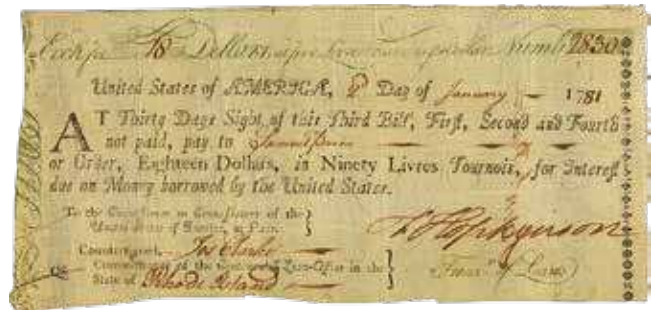 Exch.ª 18 Dollars Numb. 2830
United States of AMERICA, 8 Day of January 1781
AT Thirty Days Sight of this Third Bill, First, Second and Fourth
not paid, pay to
or Order, Eighteen Dollars, in Ninety Livres Tournois, for Interest
due on Money borrowed by the United States.
To the Commissioner or Commissioners of the
United States of America, at Paris.
F Hopkinson
Countersigned, Jos Clarke
Commissioner of the Continental Loan-Office in the
State of Rhode Island
Treasr of Loans